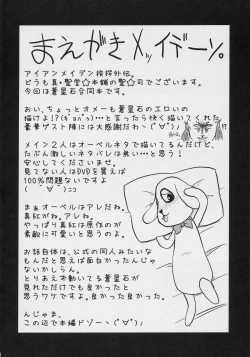 まえがきメッイデーン。
アイアンメイデン挨拶外伝。
どうも真・聖堂☆本舗の聖☆司でございます。
今回は蒼星石合同本です。
おい、ちょっとオメーも蒼星石のエロいの
描けよ!?(ギョパッ)…と言ったら快く描いてくれた
豪華ゲスト陣には大感謝だねっ(ﾟ∀ﾟ)ﾉ
メイン2人はオーベルネタで描いてるんだけど、
たぶん激しいネタバレは無い…と思う!
安心してくださいませ。
見てない人はDVDを買えば
100%問題ないですよ
まぁオーベルはアレだね。
真紅がね。アレね。
やっぱり真紅は原作のが
素敵に可愛いと思うのよ。
お話自体は、公式の同人みたいな
もんだと思えば面白かったんじゃ
ないかしらん。
とりあえず動いてる蒼星石が
見れただけでも良かったと
思うワケですよ。良かった良かった。
んじゃま、
この辺で本編ドゾー＼(ﾟ∀ﾟ)ﾉ